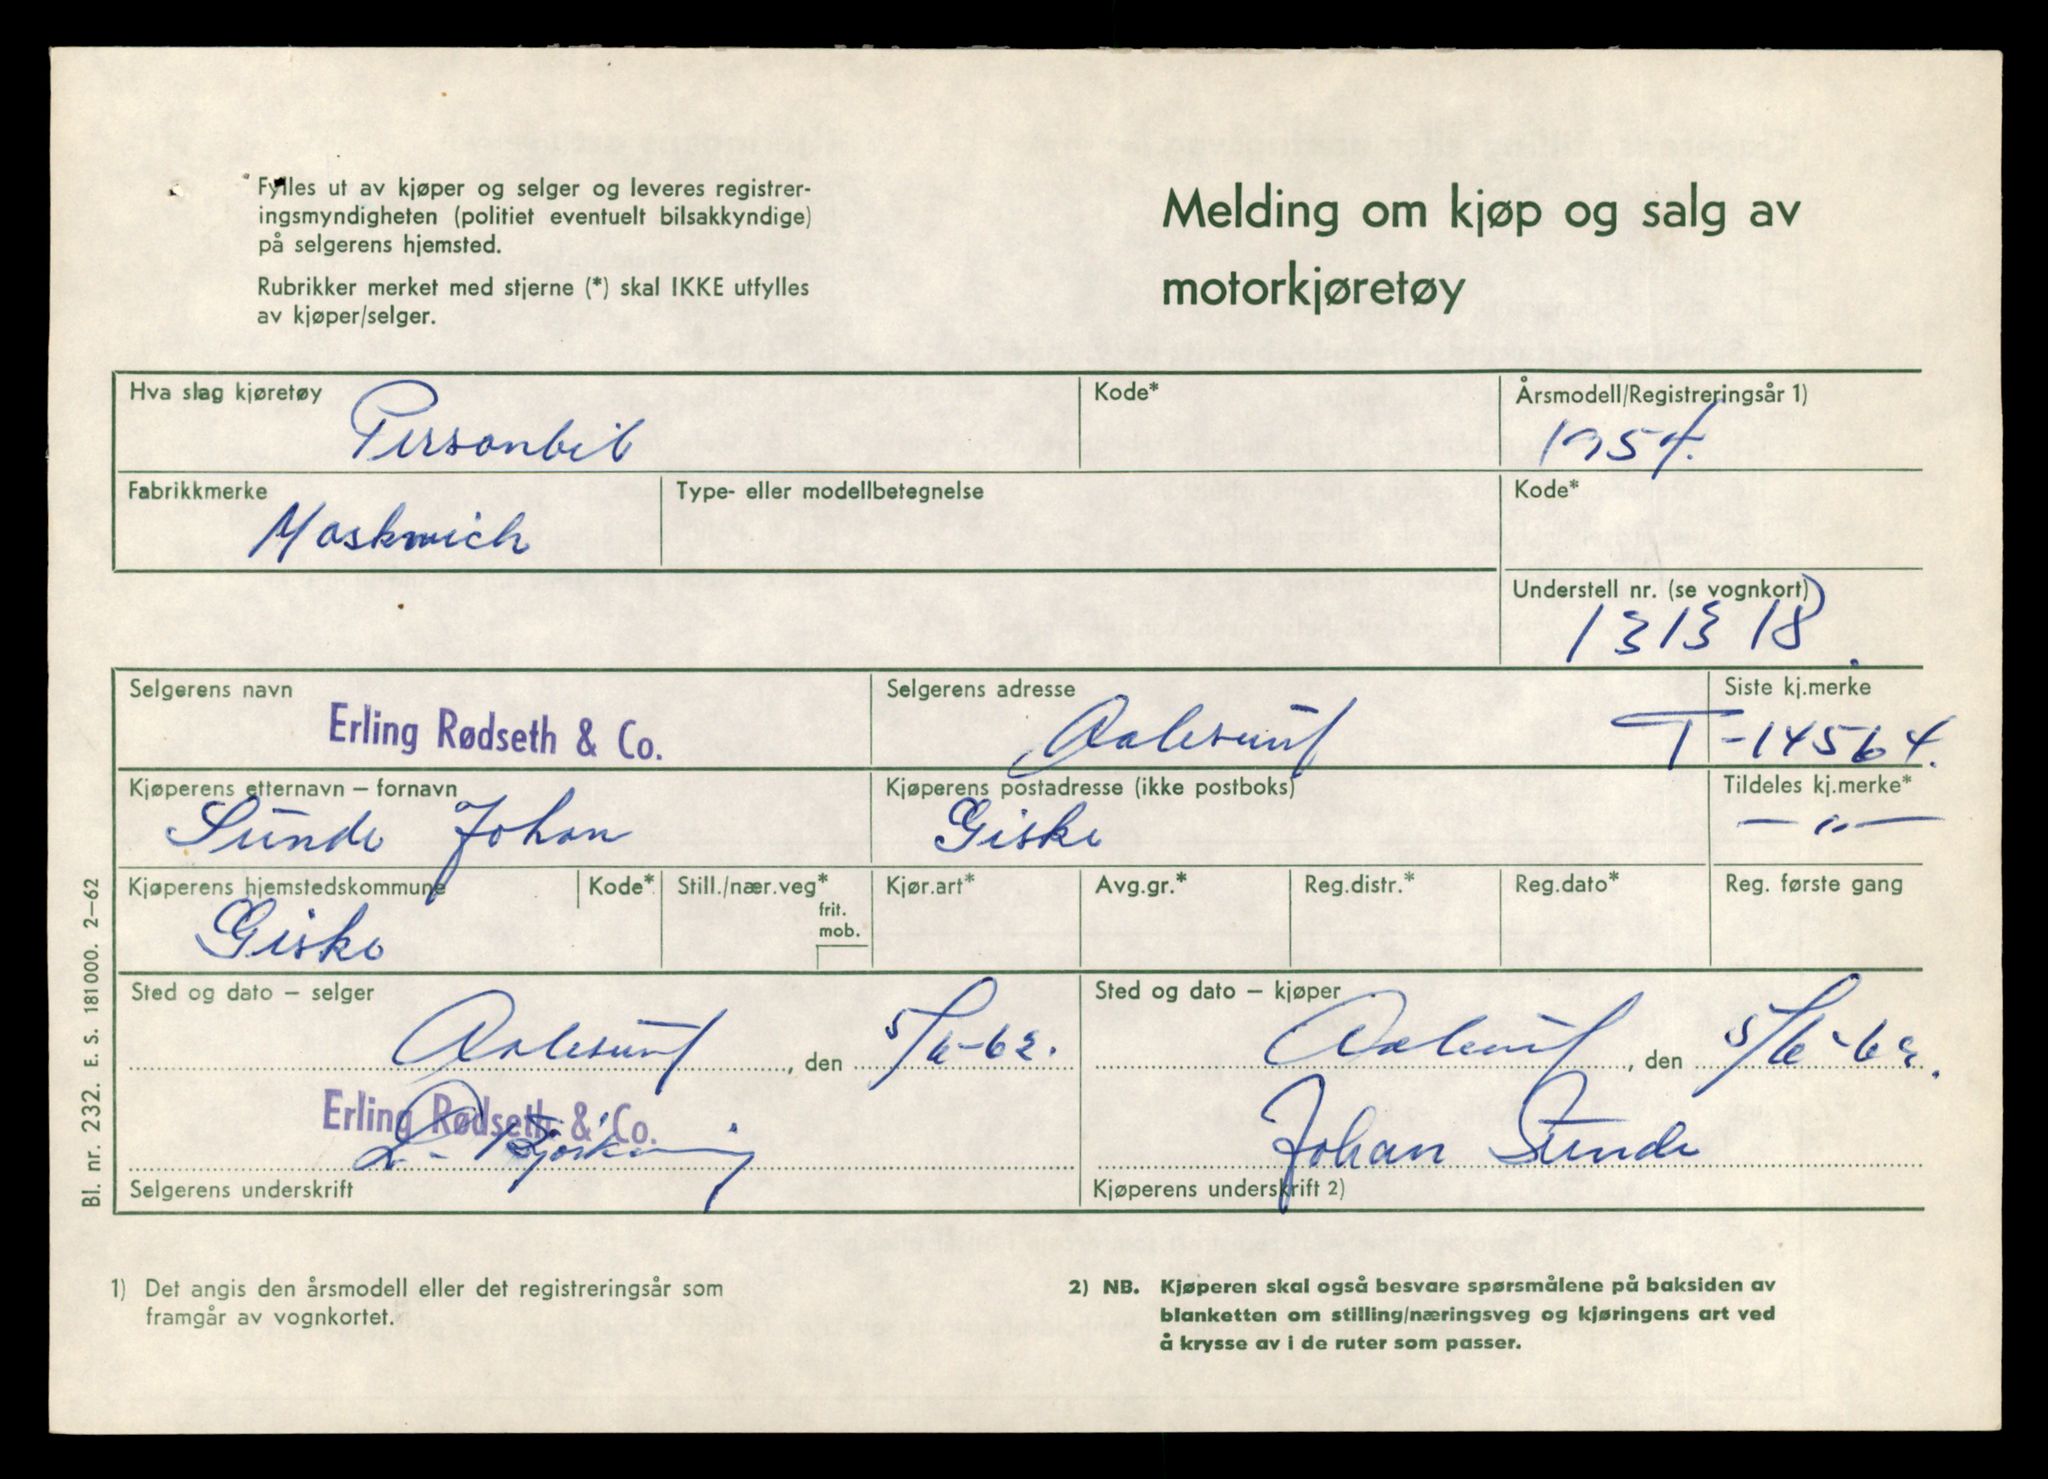 Fylles ut av kjøper og selger og leveres registrer-
ingsmyndigheten (politiet eventuelt bilsakkyndige)
på selgerens hjemsted.
Rubrikker merket med stjerne (*) skal IKKE utfylles
av kjøper/selger.
Melding om kjøp og salg av
motorkjøretøy
Hva slag kjøretøy
Personbil
Kode*
Årsmodell/Registreringsår 1)
1954.
Fabrikkmerke
Moskwich
Type- eller modellbetegnelse
Kode*
Understell nr. (se vognkort)
131318.
Selgerens navn
Erling Rødseth & Co.
Selgerens adresse
Aalesund
Siste kj.merke
T-14564.
Kjøperens etternavn – fornavn
Sunde Johan
Kjøperens postadresse (ikke postboks)
Giske
Tildeles kj.merke*
— " —
Kjøperens hjemstedskommune
Giske
Kode*
Still./nær.veg*
frit.
mob.
Kjør.art*
Avg.gr.*
Reg.distr.*
Reg.dato*
Reg. første gang
Sted og dato – selger
Aalesund, den 5/6-62.
Erling Rødseth & Co.
Selgerens underskrift
Sted og dato – kjøper
Aalesund, den 5/6-62.
Johan Sunde
Kjøperens underskrift 2)
Bl. nr. 232. E. S. 181 000. 2–62
1) Det angis den årsmodell eller det registreringsår som
framgår av vognkortet.
2) NB. Kjøperen skal også besvare spørsmålene på baksiden av
blanketten om stilling/næringsveg og kjøringens art ved
å krysse av i de ruter som passer.